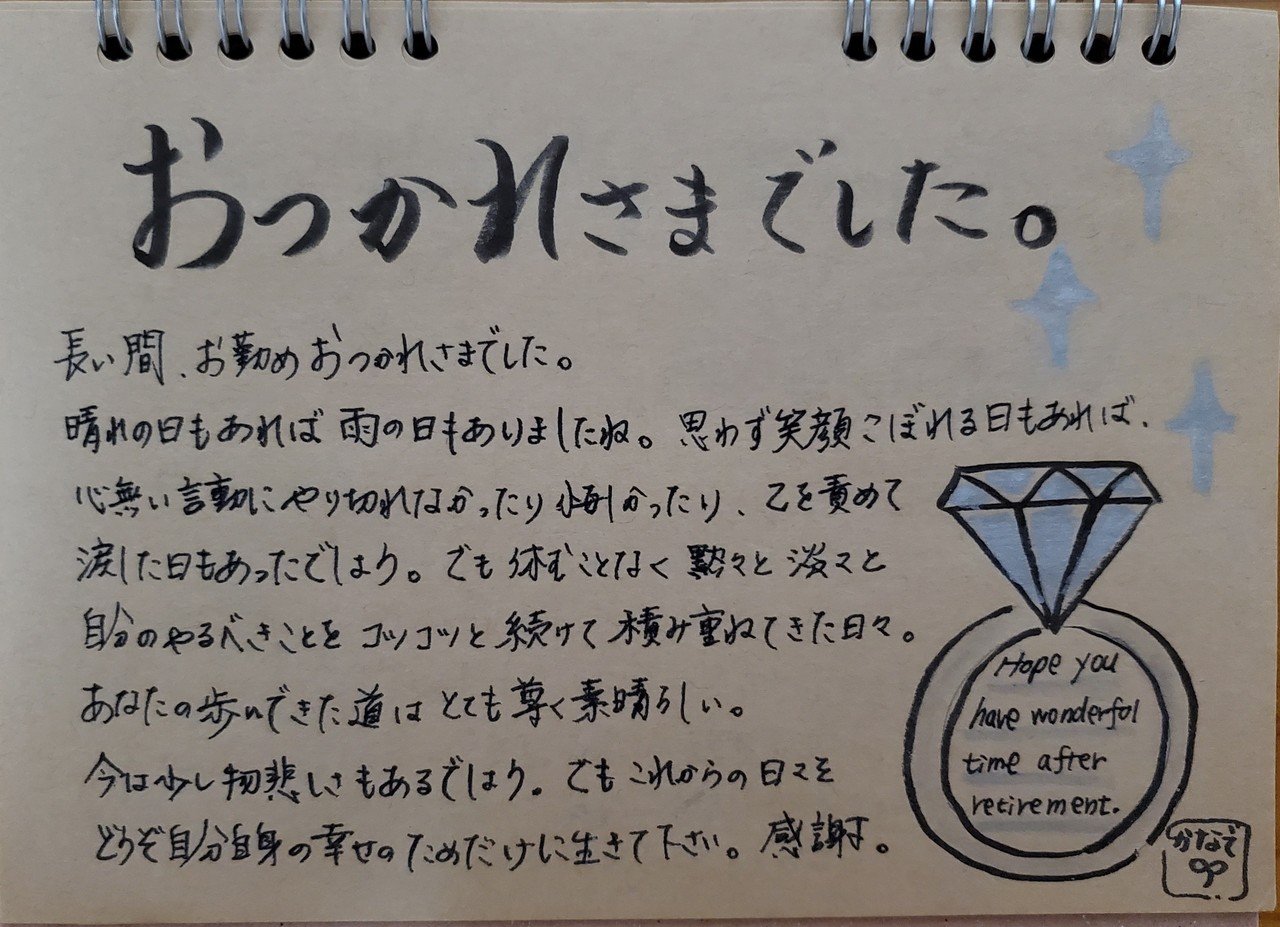 おつかれさまでした。
長い間、お勤めおつかれさまでした。
晴れの日もあれば雨の日もありましたね。思わず笑顔こぼれる日もあれば、
心無い言動にやり切れなかったり悔しかったり、己を責めて
涙した日もあったでしょう。でも休むことなく黙々と淡々と
自分のやるべきことをコツコツと続けて積み重ねてきた日々。
あなたの歩いてきた道はとても尊く素晴らしい。
今は少し物悲しさもあるでしょう。でもこれからの日々を
どうぞ自分自身の幸せのためだけに生きて下さい。感謝。
Hope you
have wonderful
time after
retirement.
かなで